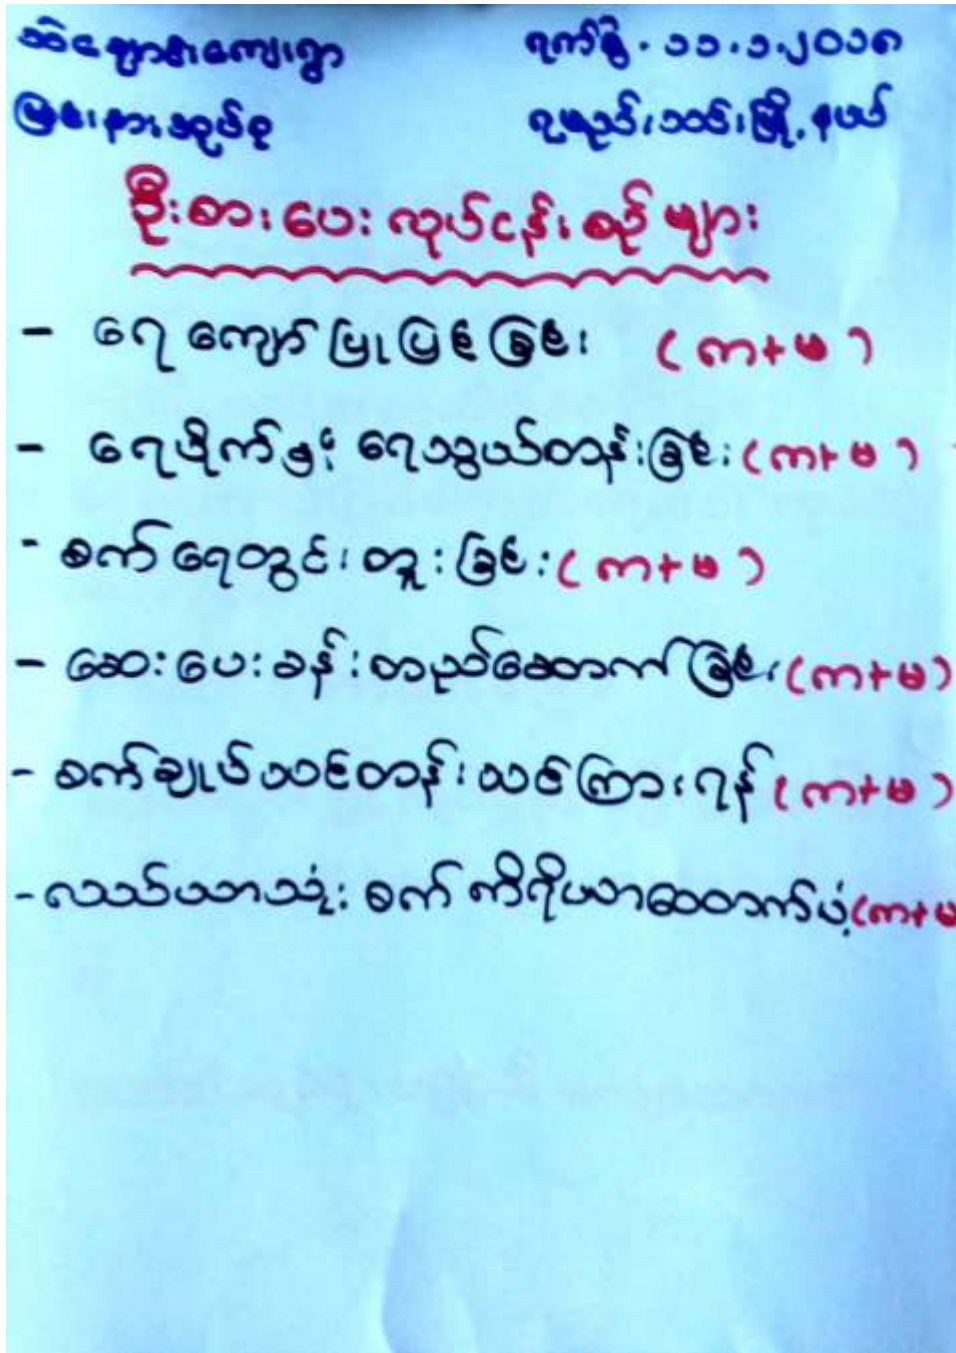 ဆဲငချောင်းကျေးရွာ ရက်စွဲ . ၁၁.၁.၂၀၁၈
မြင်းနားအုပ်စု ရမည်းသင်းမြို့နယ်
ဦးစားပေး လုပ်ငန်းစဉ်များ
- ရေကျော်ပြုပြင်ခြင်း (က+မ)
- ရေပိုက်နှင့် ရေသွယ်တန်းခြင်း (က+မ)
- စက်ရေတွင်းတူးခြင်း (က+မ)
- ဆေးပေးခန်းတည်ဆောက်ခြင်း (က+မ)
- စက်ချုပ်သင်တန်းသင်ကြားရန် (က+မ)
- လယ်ယာသုံး စက်ကိရိယာထောက်ပံ့ (က+မ